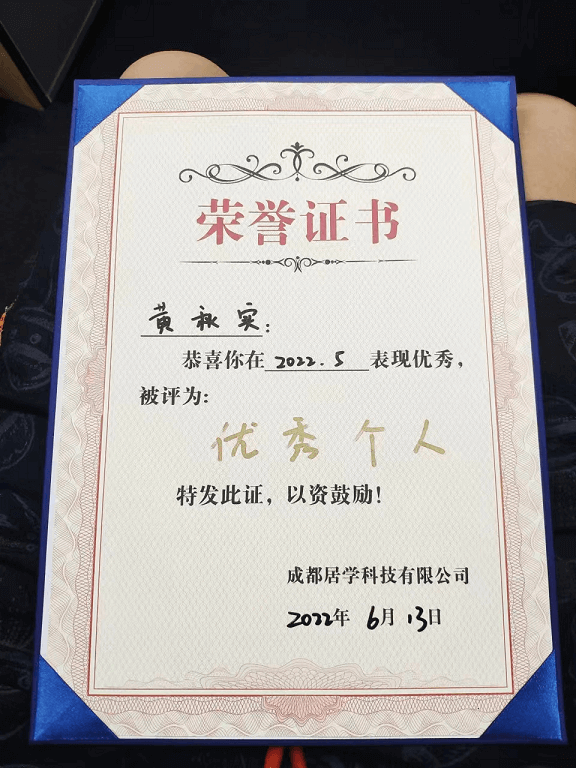 荣誉证书
黄秋实:
恭喜你在 2022.5 表现优秀,
被评为:
优秀个人
特发此证, 以资鼓励!
成都居学科技有限公司
2022年 6月 13日